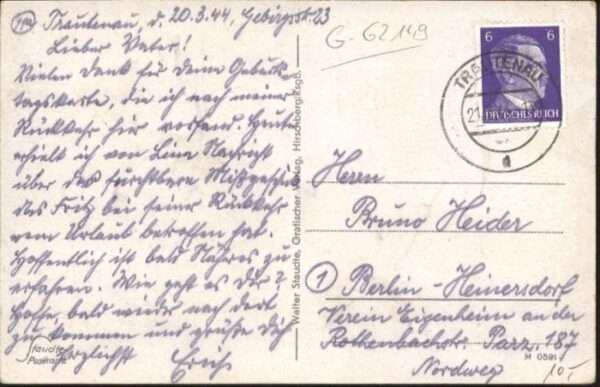 Trautenau, d. 20.3.44, Gebirgstr. 23
Lieber Vater!
Vielen Dank für Deine Geburts-
tagskarte, die ich nach meiner
Rückkehr hier vorfand. Heute
erhielt ich von Nachricht
über das furchtbare Mißgeschick
das Fritz bei seiner Rückkehr
vom Urlaub betroffen hat.
Hoffentlich ist bald Näheres zu
erfahren. Wie geht es Dir?
Hoffe, bald wieder nach dort
zu kommen und grüße Dich
herzlichst Erich
Staudte
Postkarte
Walter Staudte, Grafischer Verlag, Hirschberg/Rsgb.
G-62149
6 6
DEUTSCHES REICH
TRAUTENAU
21
a
Herrn
Bruno Heider
1 Berlin-Heinersdorf
Verein Eigenheim an der
Rothenbachstr. Parz. 187
Nordweg
M 0591
10,-